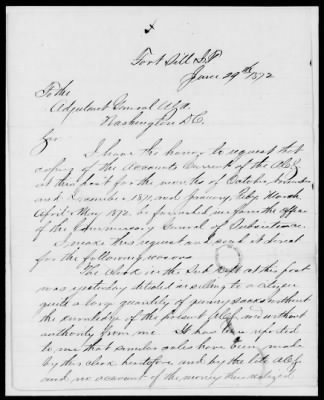 Fort Sill I.T.
June 29th 1872
To the
Adjutant General
Washington D.C.
Sir
I have the honor to request that
copies of the Accounts Current of the A.C.S.
at this post for the months of October November
and December 1871, and January Feby March
April & May 1872 be furnished me from the office
of the Commissary General of Subsistence.
I make this request and send it direct
for the following reasons
The Clerk in the Sub Dept at this post
was yesterday detected in selling to a citizen
quite a large quantity of gunny sacks without
the knowledge of the present A.C.S. and without
authority from me. It has been reported
to me that similar sales have been made
by this clerk heretofore and by the late A.C.S.
and no account of the money thus realized